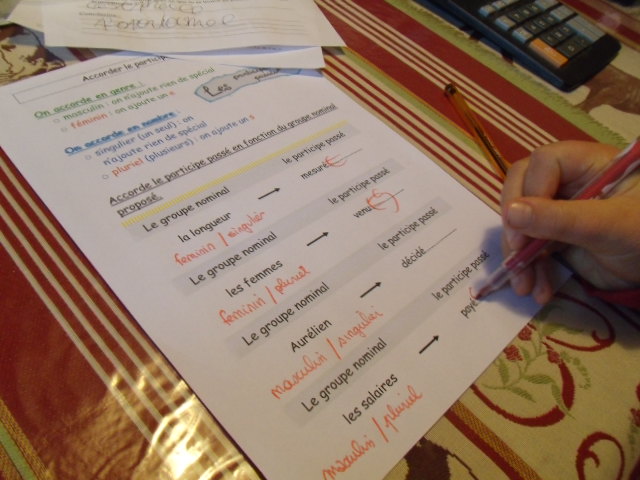 Accorder le particip
Les
On accorde en genre :
o masculin : on n'ajoute rien de spécial
o féminin : on ajoute un e
On accorde en nombre :
o singulier (un seul) : on
n'ajoute rien de spécial
o pluriel (plusieurs) : on ajoute un s
Accorde le participe passé en fonction du groupe nominal
proposé.
Le groupe nominal le participe passé
la longueur → mesuré e
feminin / singulier
Le groupe nominal le participe passé
les femmes → venu es
feminin / pluriel
Le groupe nominal le participe passé
Aurélien → décidé
masculin / singulier
Le groupe nominal le participe passé
les salaires → payé
masculin / pluriel